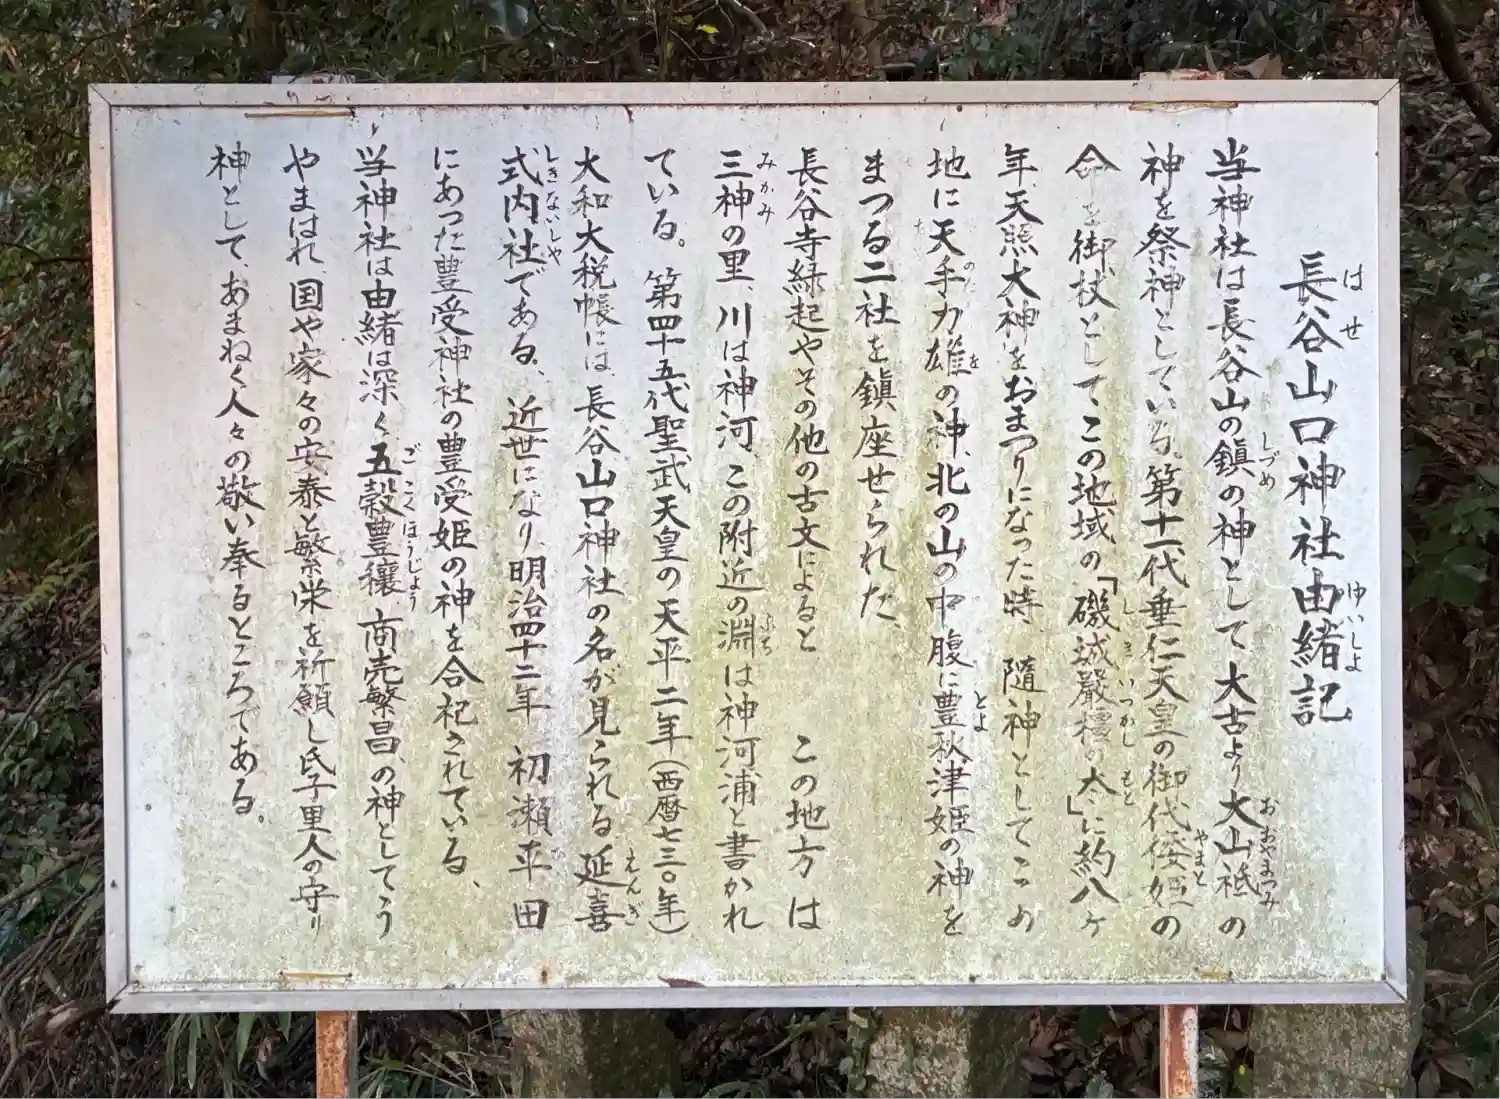 長谷山口神社由緒記
当神社は長谷山の鎮の神として大古より大山祗の
神を祭神としている。第十一代垂仁天皇の御代倭姫の
命を御杖としてこの地域の「磯城厳橿の本」に約八ヶ
年、天照大神をおまつりになった時、随神としてこの
地に天手力雄の神、北の山の中腹に豊秋津姫の神を
まつる二社を鎮座せられた
長谷寺縁起やその他の古文によると この地方は
三神の里、川は神河、この附近の淵は神河浦と書かれ
ている。第四十五代聖武天皇の天平二年(西暦七三〇年)
大和大税帳には、長谷山口神社の名が見られる延喜
式内社である、近世になり、明治四十二年 初瀬平田
にあった豊受神社の豊受姫の神を合祀されている、
当神社は由緒は深く、五穀豊穣、商売繁昌、の神としてう
やまはれ、国や家々の安泰と繁栄を祈願し氏子里人の守り
神として、あまねく人々の敬い奉るところである。